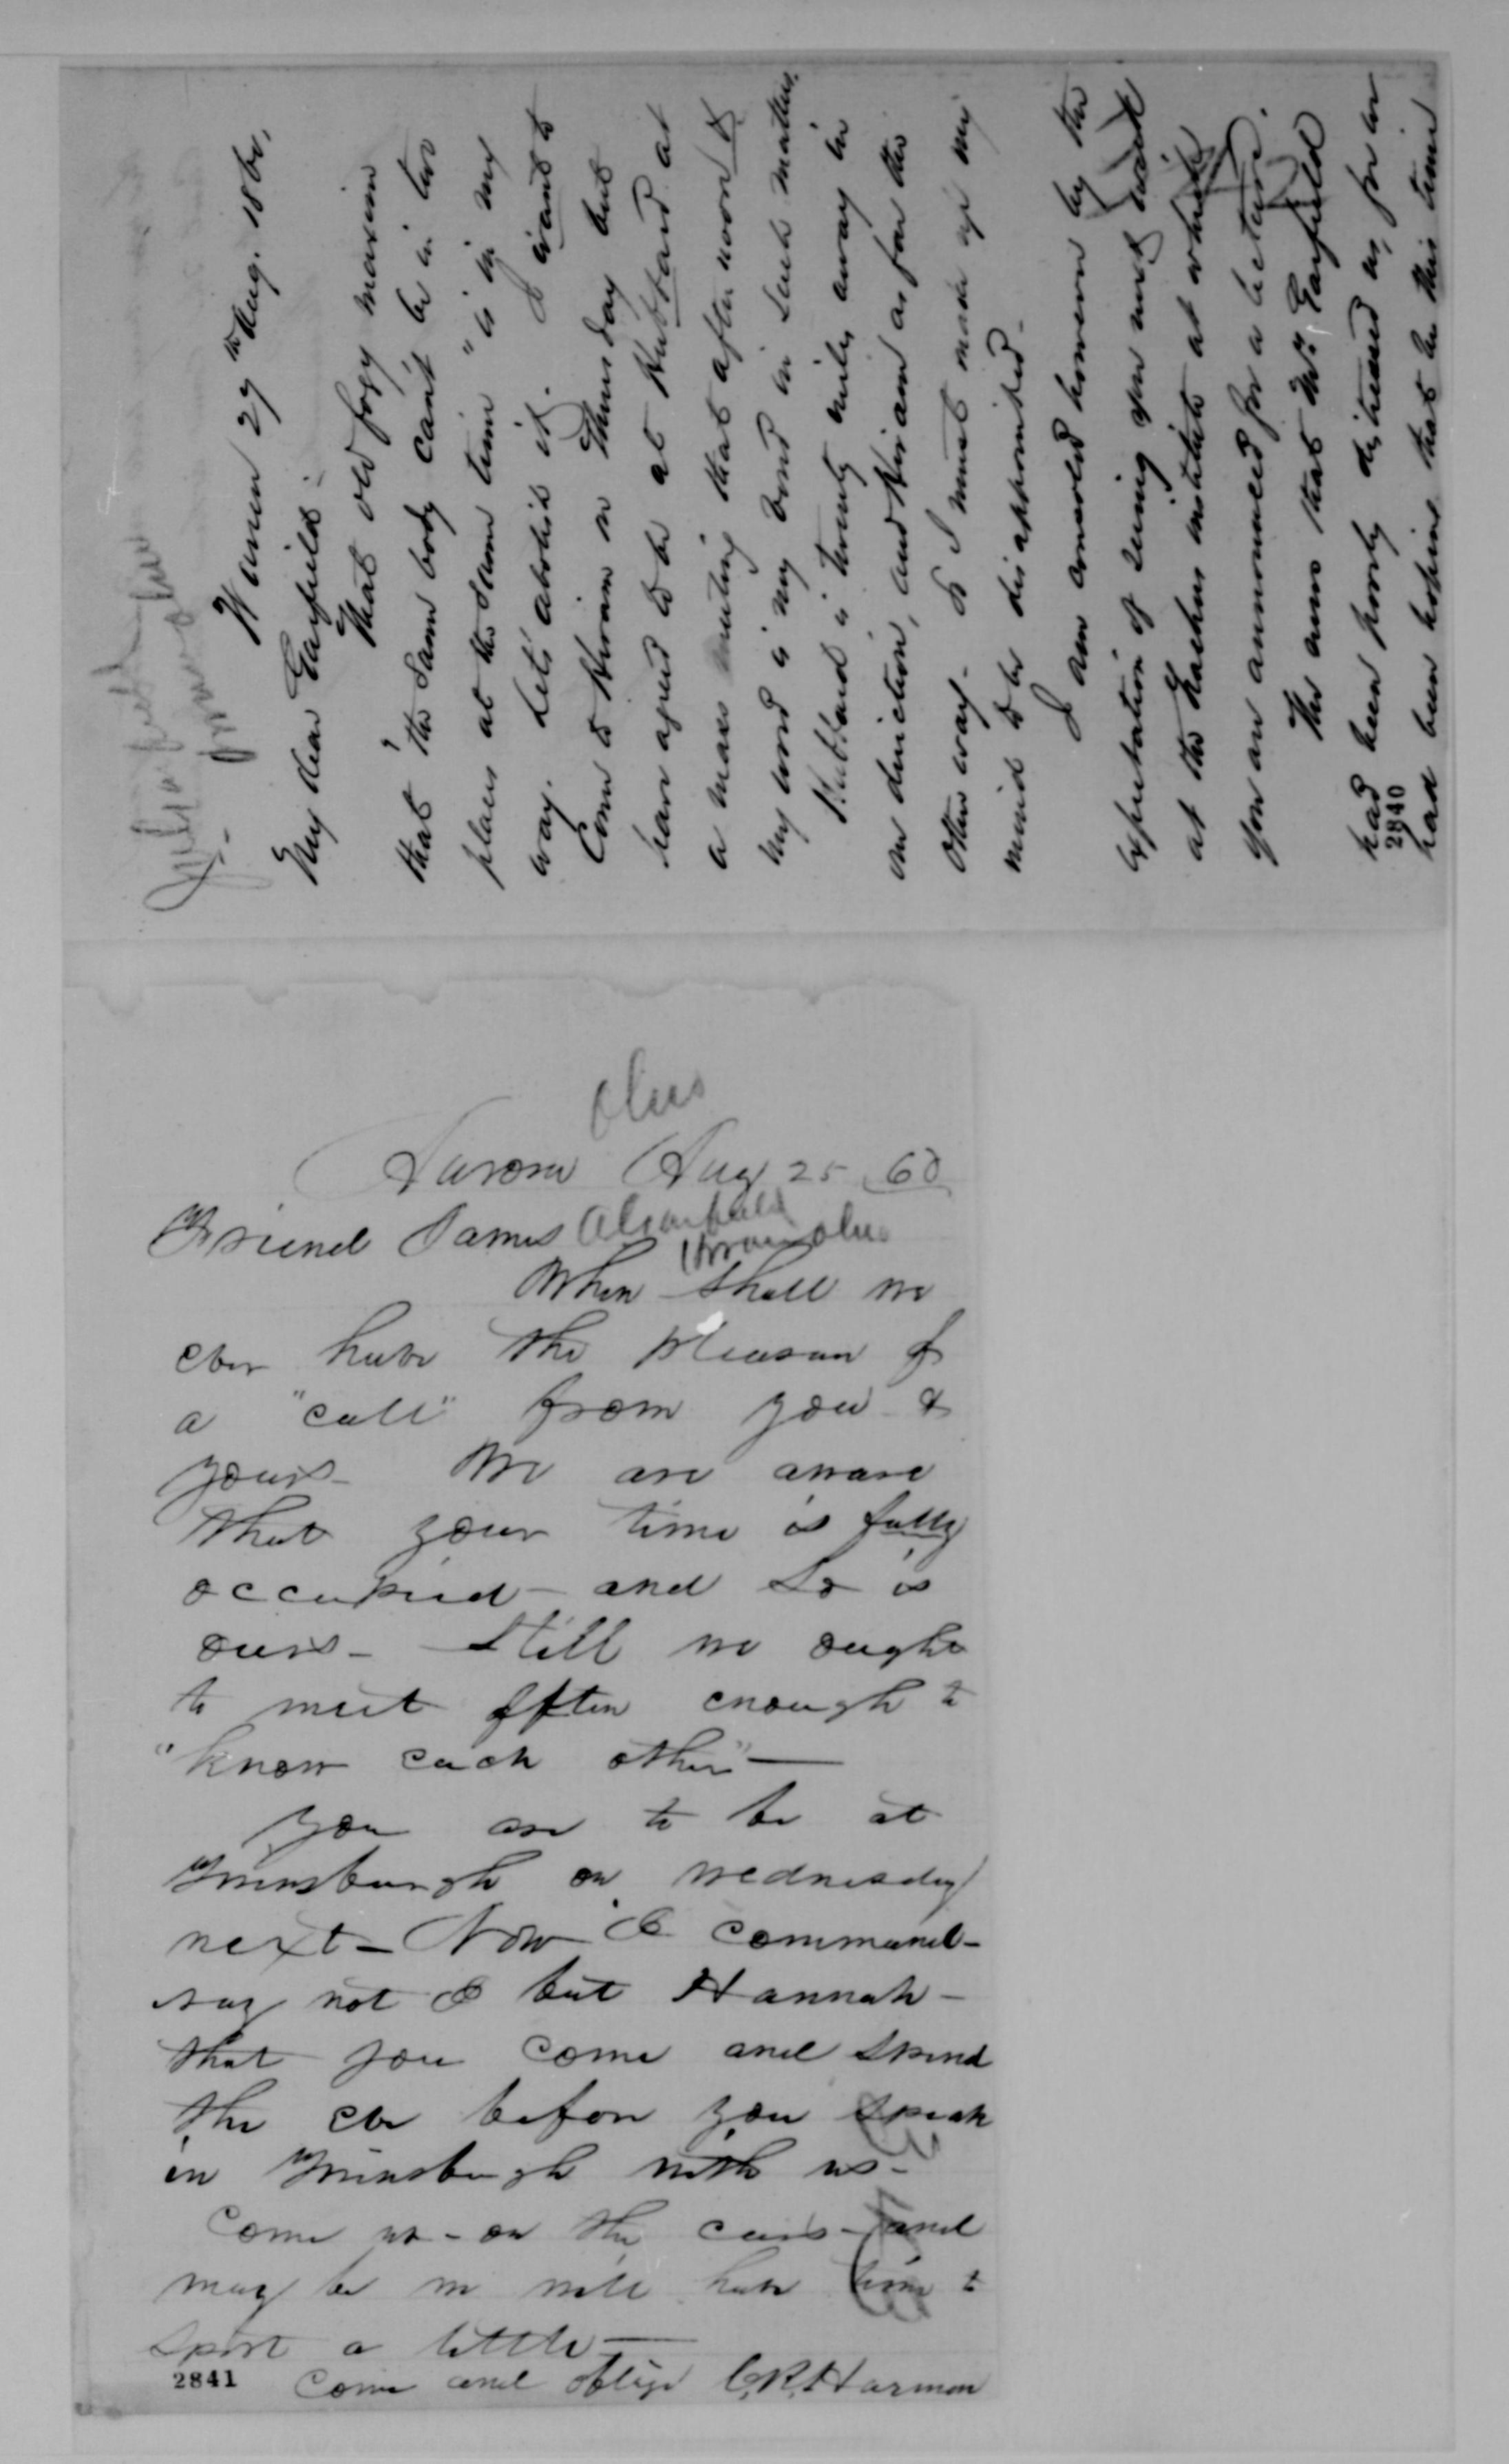 Warren 27th Aug. 1860,
My dear Garfield:
That old fogy maxim
that "the same body can't be in two
places at the same time" is in my
way. Let's abolish it. I want to
Come to Hiram on Thursday but
have agreed to be at Hubbard at
a mass meeting that afternoon &
my word is my bond in such matters.
Hubbard is twenty miles away in
one direction, and Hiram as far the
other way. So I must make up my
mind to be disappointed.
I am consoled however by the
expectation of seeing you next week
at the Teachers institute at which
you are announced for a lecture.
The news that Mrs Garfield
had been poorly distressed us, for we
had been hoping that by this time
2840
Ohio
Aurora Aug 25 60
Friend James A Garfield
Hiram Ohio
When shall we
ever have the pleasure of
a "call" from you &
yours - We are aware
that your time is fully
occupied - and so is
ours - Still we ought
to meet often enough to
"know each other" —
you are to be at
Twinsburgh on Wednesday
next - Now I command -
say not I but Hannah -
that you come and spend
the eve before you speak
in Twinsburgh with us -
Come up - on the cars - and
may be we will have time to
sport a little —
2841 Come and oblige C.R. Harmon